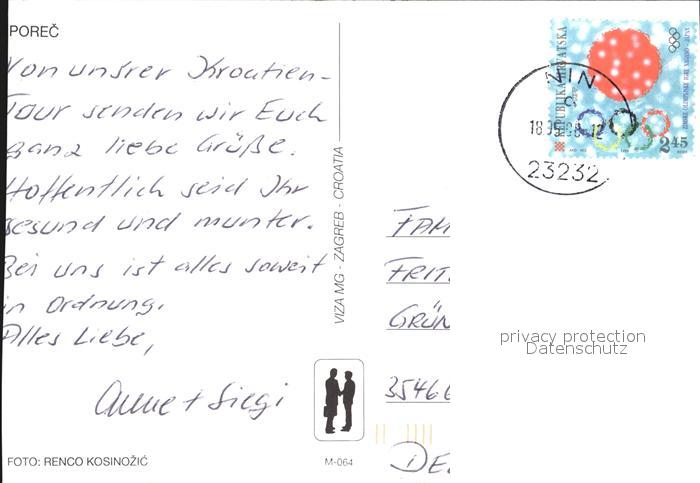 POREČ
Von unsrer Kroatien-
Tour senden wir Euch
ganz liebe Grüße.
Hoffentlich seid Ihr
gesund und munter.
Bei uns ist alles soweit
in Ordnung.
Alles Liebe,
Anne + Siegi
FOTO: RENCO KOSINOŽIĆ
VIZA MG - ZAGREB - CROATIA
M-064
REPUBLIKA HRVATSKA
2 45
NIN
18.05.98-12
23232
FAM
FRIT
GRÜN
35466
DE
privacy protection
Datenschutz